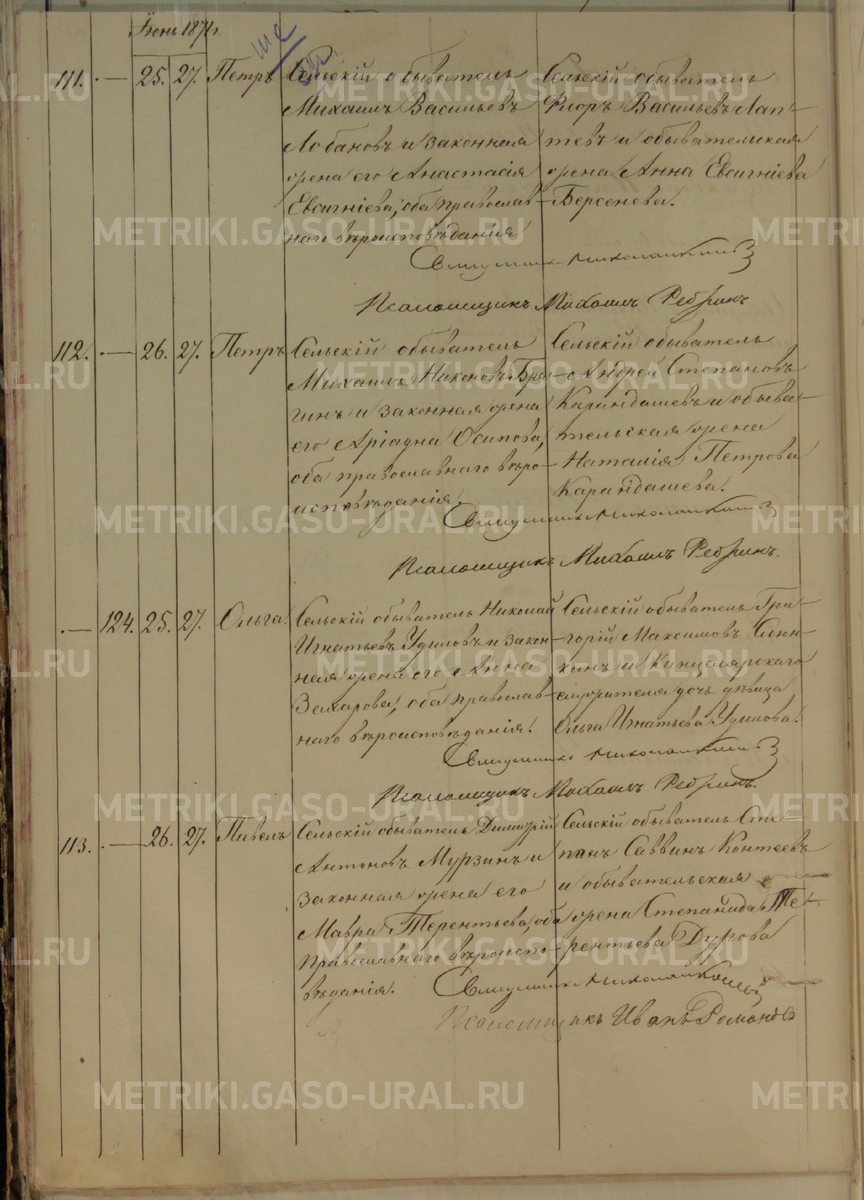 Іюнь 1871г.
111. — 25. 27. Петръ Сельскій обыватель
Михаилъ Васильевъ
Лобановъ и законная
жена его Анастасія
Евсигніева, оба православ-
наго вѣроисповѣданія
Сельскій обыватель
Васильевъ Лап-
тевъ и обывательская
жена Анна Евсигніева
Берсенева.
Псаломщикъ Михаилъ Ребринъ
112. — 26. 27. Петръ Сельскій обыватель
Михаилъ Никоновъ
и законная жена
его Аріадна Осипова,
оба православнаго вѣро-
исповѣданія.
Сельскій обыватель
Андрей Степановъ
Карандашевъ и обыва-
тельская жена
Наталія Петрова
Карандашева.
Псаломщикъ Михаилъ Ребринъ.
— 124. 25. 27. Ольга. Сельскій обыватель Николай
Игнатьевъ Удиловъ и закон-
ная жена его Анна
Захарова, оба православ-
наго вѣроисповѣданія.
Сельскій обыватель Гри-
горій Максимовъ
и Канцелярскаго
дочь дѣвица
Ольга Игнатьева
Псаломщикъ Михаилъ Ребринъ.
113. — 26. 27. Павелъ Сельскій обыватель Димитрій
Антоновъ Мурзинъ и
законная жена его
Мавра Терентьева, оба
православнаго вѣроиспо-
вѣданія.
Сельскій обыватель Сте-
панъ Саввинъ Контеевъ
и обывательская
жена Степанида Те-
рентьева Дурова
Псаломщикъ Иванъ Романовъ
METRIKI.GASO-URAL.RU